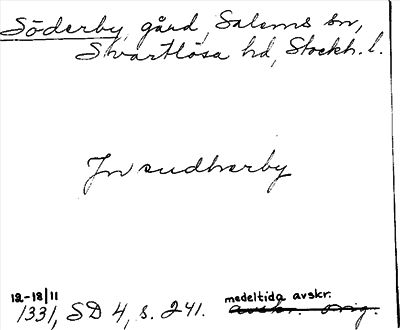 Söderby, gård, Salems sn,
Svartlösa hd, Stockh. l.
Jn sudherby
12-18/11 medeltida avskr.
1331, SD 4, s. 241. avskr. orig.